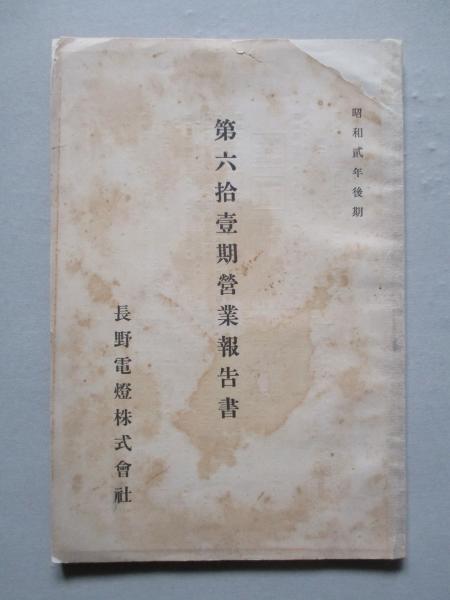 昭和貳年後期
第六拾壹期營業報告書
長野電燈株式會社